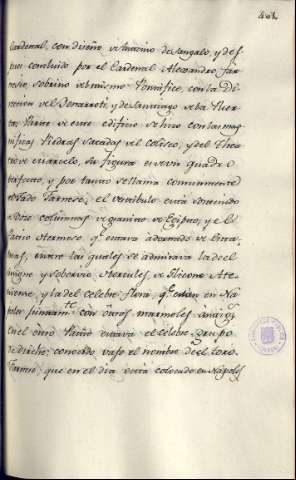 401
Cardenal, con diseño de Antonio de Sangalo, y des-
pues concluido por el Cardenal Alexandro Far-
nesio, sobrino del mismo Pontifice, con la Di-
reccion del Bonarroti, y de Santiago de la Puer-
ta; Parte de este edificio se hizo con las mag-
nificas Piedras sacadas del Coliseo, y del Thea-
tro de Marcelo, su figura es de un quadro
perfecto, y por tanto se llama comunmente
el Dado Farnese; el vestibulo está sostenido
de doze columnas de granito de Egipto, y el
Patio hermoso, qe. estava adornado de Esta-
tuas, entre las quales se admirava la del
insigne y sobervio Hercules de Glicone Ate-
niense, y la del celebre Flora, qe. estan en Na-
poles juntamte. con otros marmoles
en el otro Patio estava el celebre grupo
de Dirche, conocido vajo el nombre del toro
Farnesio, que en el dia está colocado en Napoles